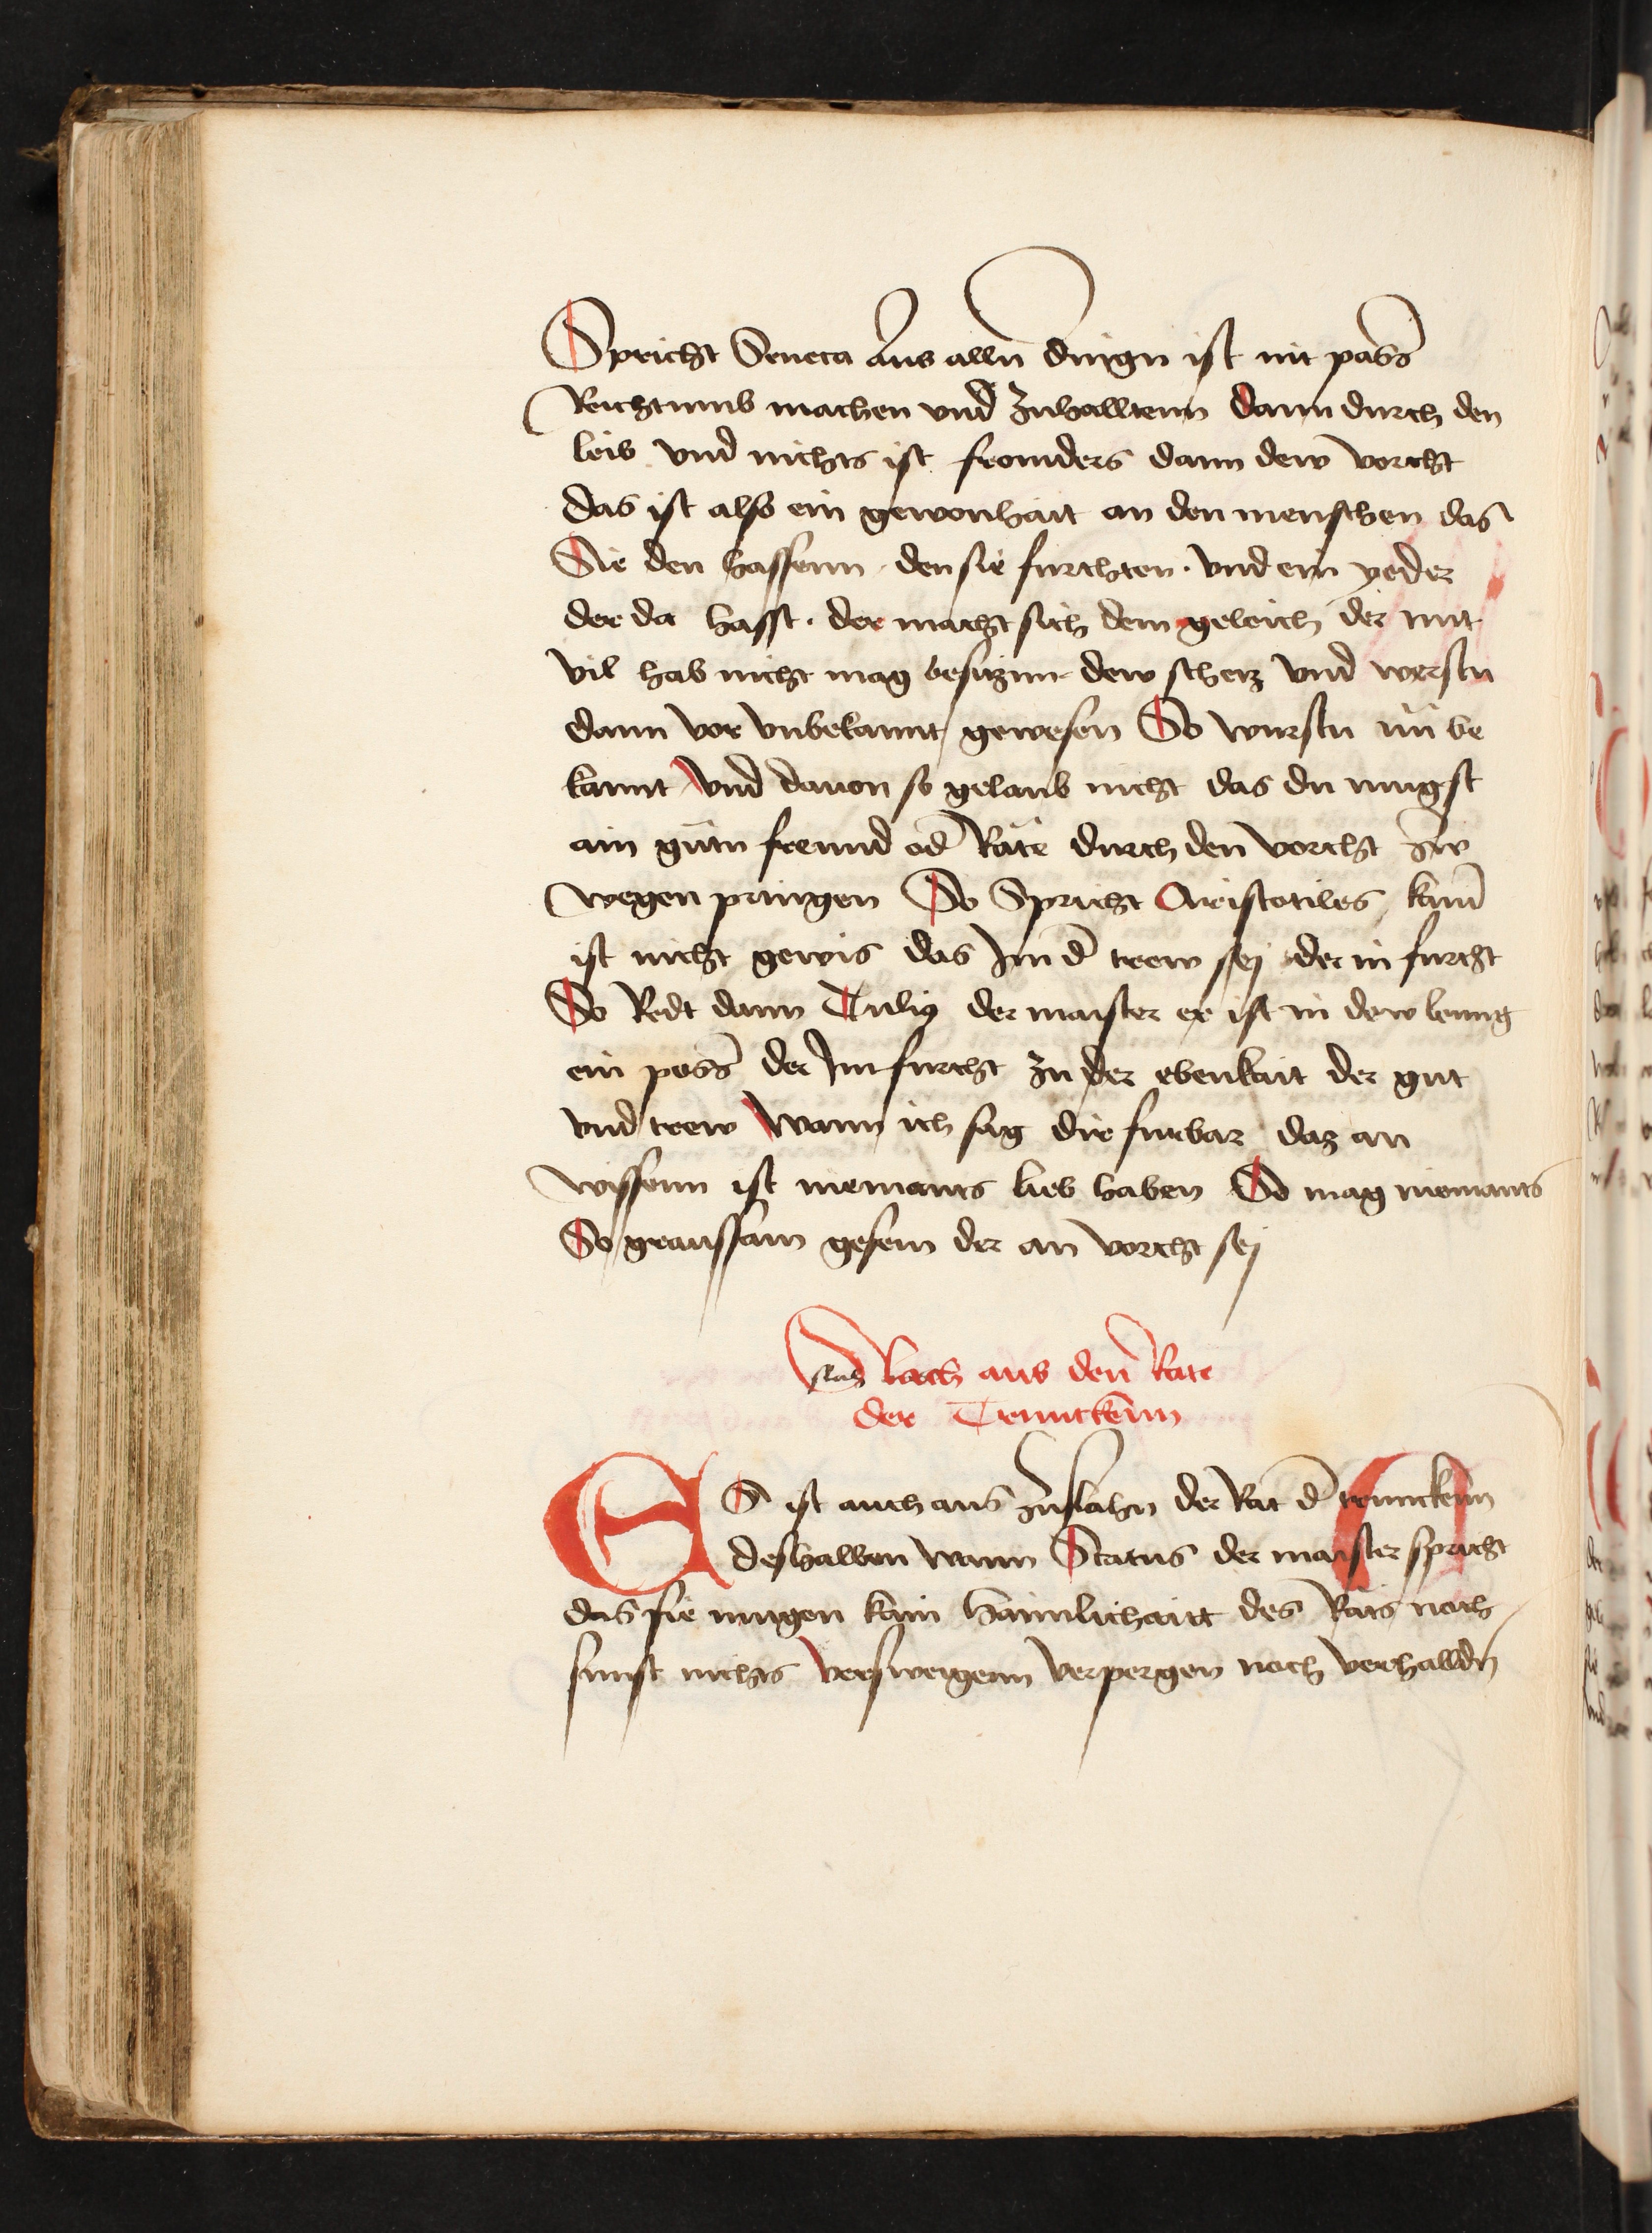 Spricht Seneca Aus alln̄ dingn ist nit pass̄
Reichtumb machen vnd zuhalltenn dann durch den
leib vnd nichts ist fromders dann dew vorcht
das ist also ein gewonhait an den menschen das
Sie den hassenn · den sie furchten · vnd ein yeder
der da hasst · der macht sich dem geleich der mit
vil hab nicht mag besitznn dew scherz vnd werstu
dann vor vnbekannt gewesen So wurstu nū be
kannt vnd dauon so gelaub nicht das du mugst
ain gutn freund od̄ Räte durch den vorcht zw
wegen pringen So Spricht Aristotiles kain̄
ist nicht gewis das Im d̄ trew sej der in furcht
So Redt dann Tulig der maister er ist in dew leung
ein poss̄ der Im furcht zu der ebenkait der gut
vnd trew Wann ich sag dir furbar daz an
wissenn ist niemants lieb haben So mag niemants
So graussam gesein der an vorcht sej
slach aus den Rate
der Trunckenn
ES ist auch aus zuslahn der Rat d̄ trunckenn
deshalben wann Status der maister spricht
das sie mugen kain haimlichaitt des Rats noch
sunst nichts versweigenn verpergen noch verhalldn̄